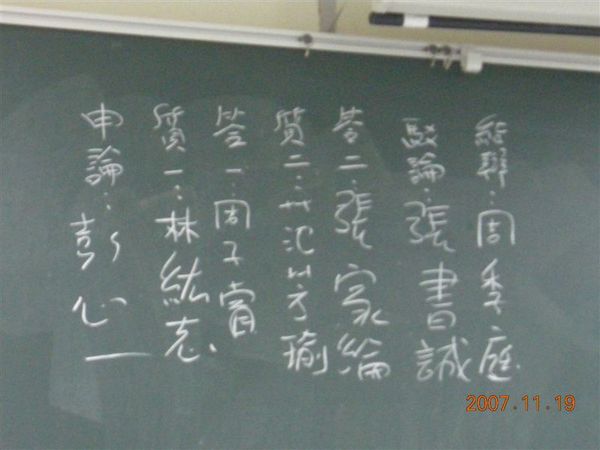 申論：彭心一
質一：林紘志
答一：周子
質二：范芳瑜
答二：張家綸
駁論：張書誠
結辯：周季庭
2007.11.19